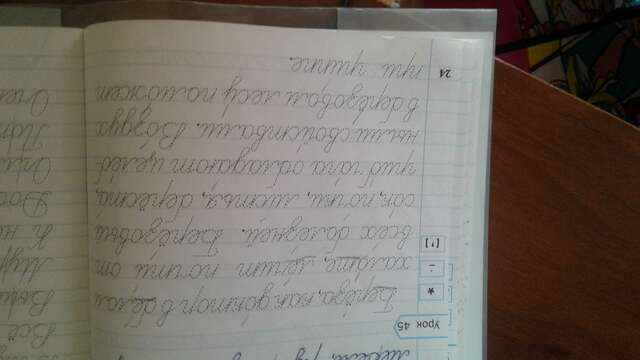 Урок 45
Берёза, как доктор в белом
халате, лечит почти от
всех болезней. Берёзовый
сок, почки, листья, берёста,
гриб чага обладают целеб-
ными свойствами. Воздух
в берёзовом лесу поможет
при гриппе.
24
Всё
К